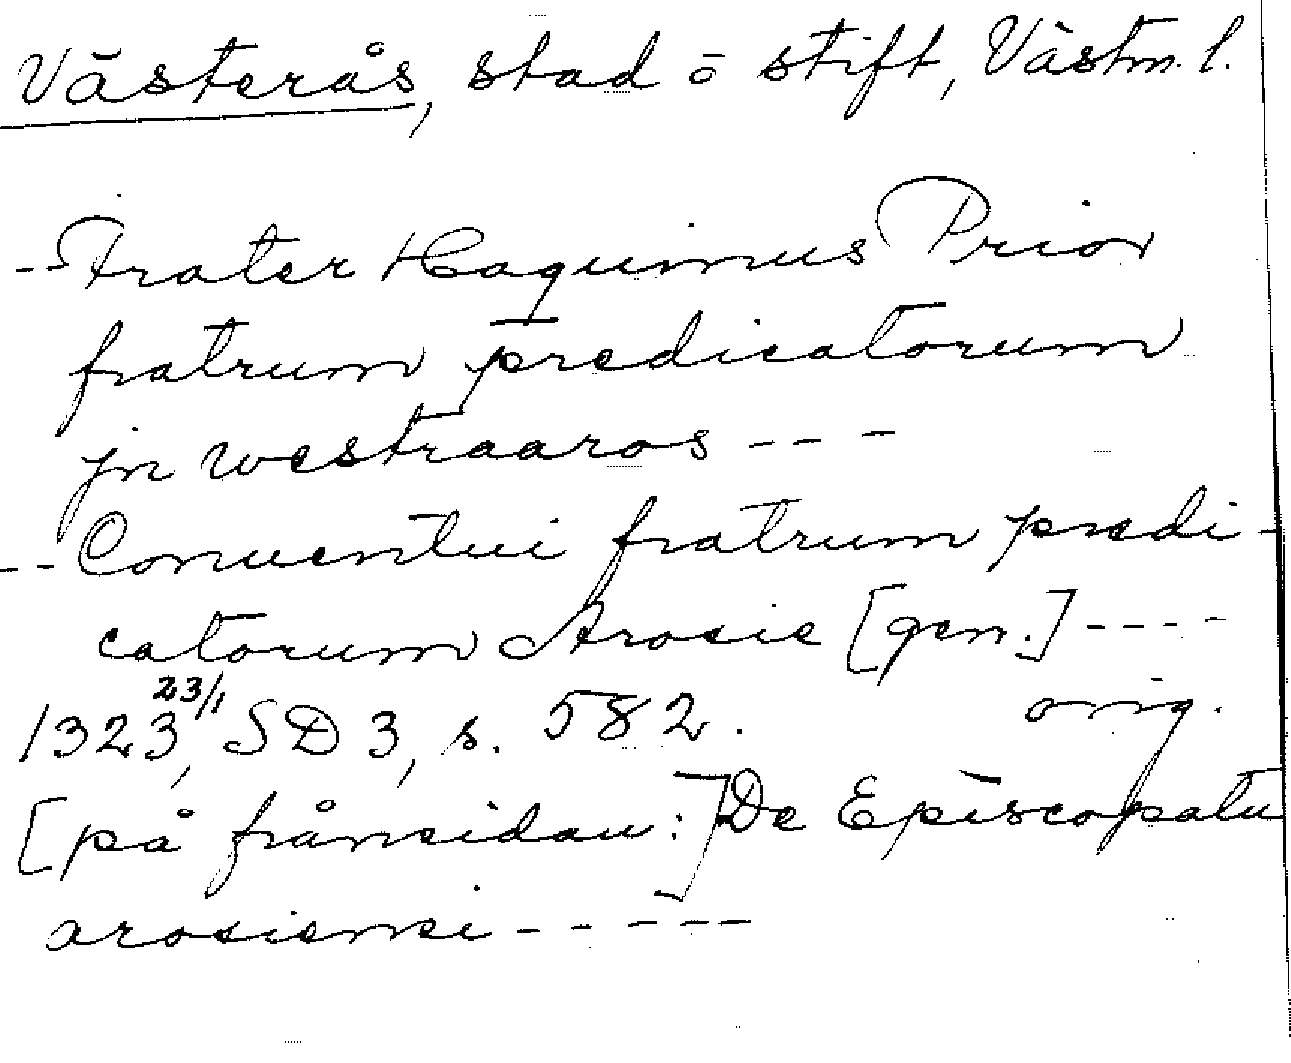 Västerås, stad o stift, Västm. l.
--Frater Haquinus Prior
fratrum predicatorum
jn westraaros ---
--Conuentui fratrum predi-
catorum Arosie [gen.] ----
1323 23/1, SD 3, s. 582. orig.
[på frånsidan:] De Episcopatu
arosiensi -----